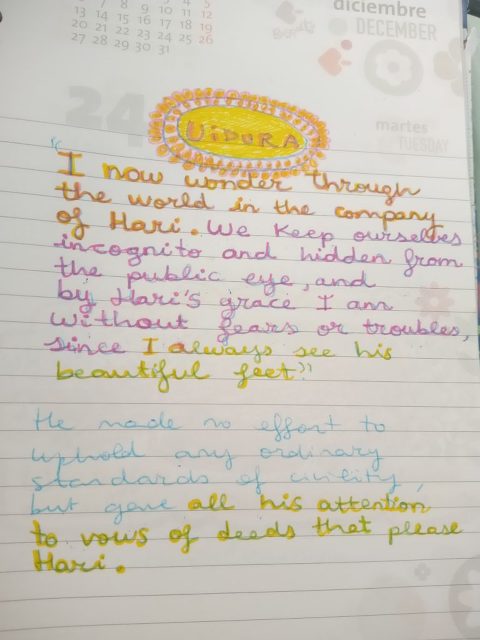 diciembre
DECEMBER
7 8 9 10 11 12
13 14 15 16 17 18 19
20 21 22 23 24 25 26
27 28 29 30 31
24
martes
TUESDAY
VIDURA
"I now wonder through
the world in the company
of Hari. We keep ourselves
incognito and hidden from
the public eye, and
by Hari's grace I am
without fears or troubles,
since I always see his
beautiful feet"
He made no effort to
uphold any ordinary
standards of civility,
but gave all his attention
to vows of deeds that please
Hari.